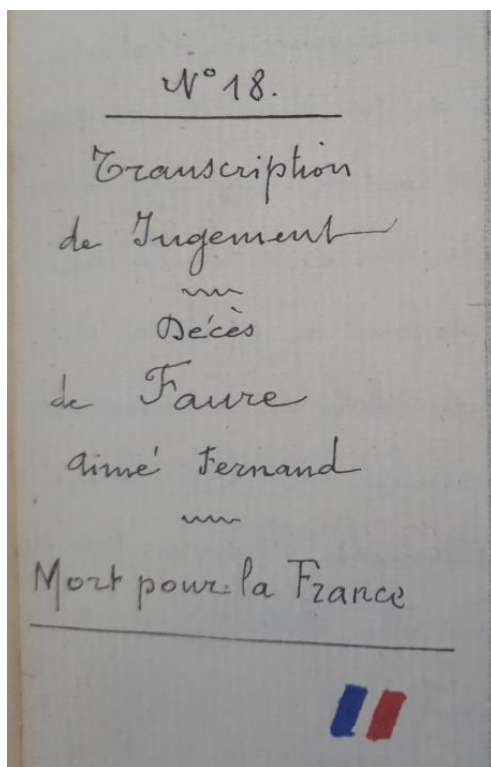 N° 18.
Transcription
de Jugement
Décès
de Faure
Aimé Fernand
Mort pour la France